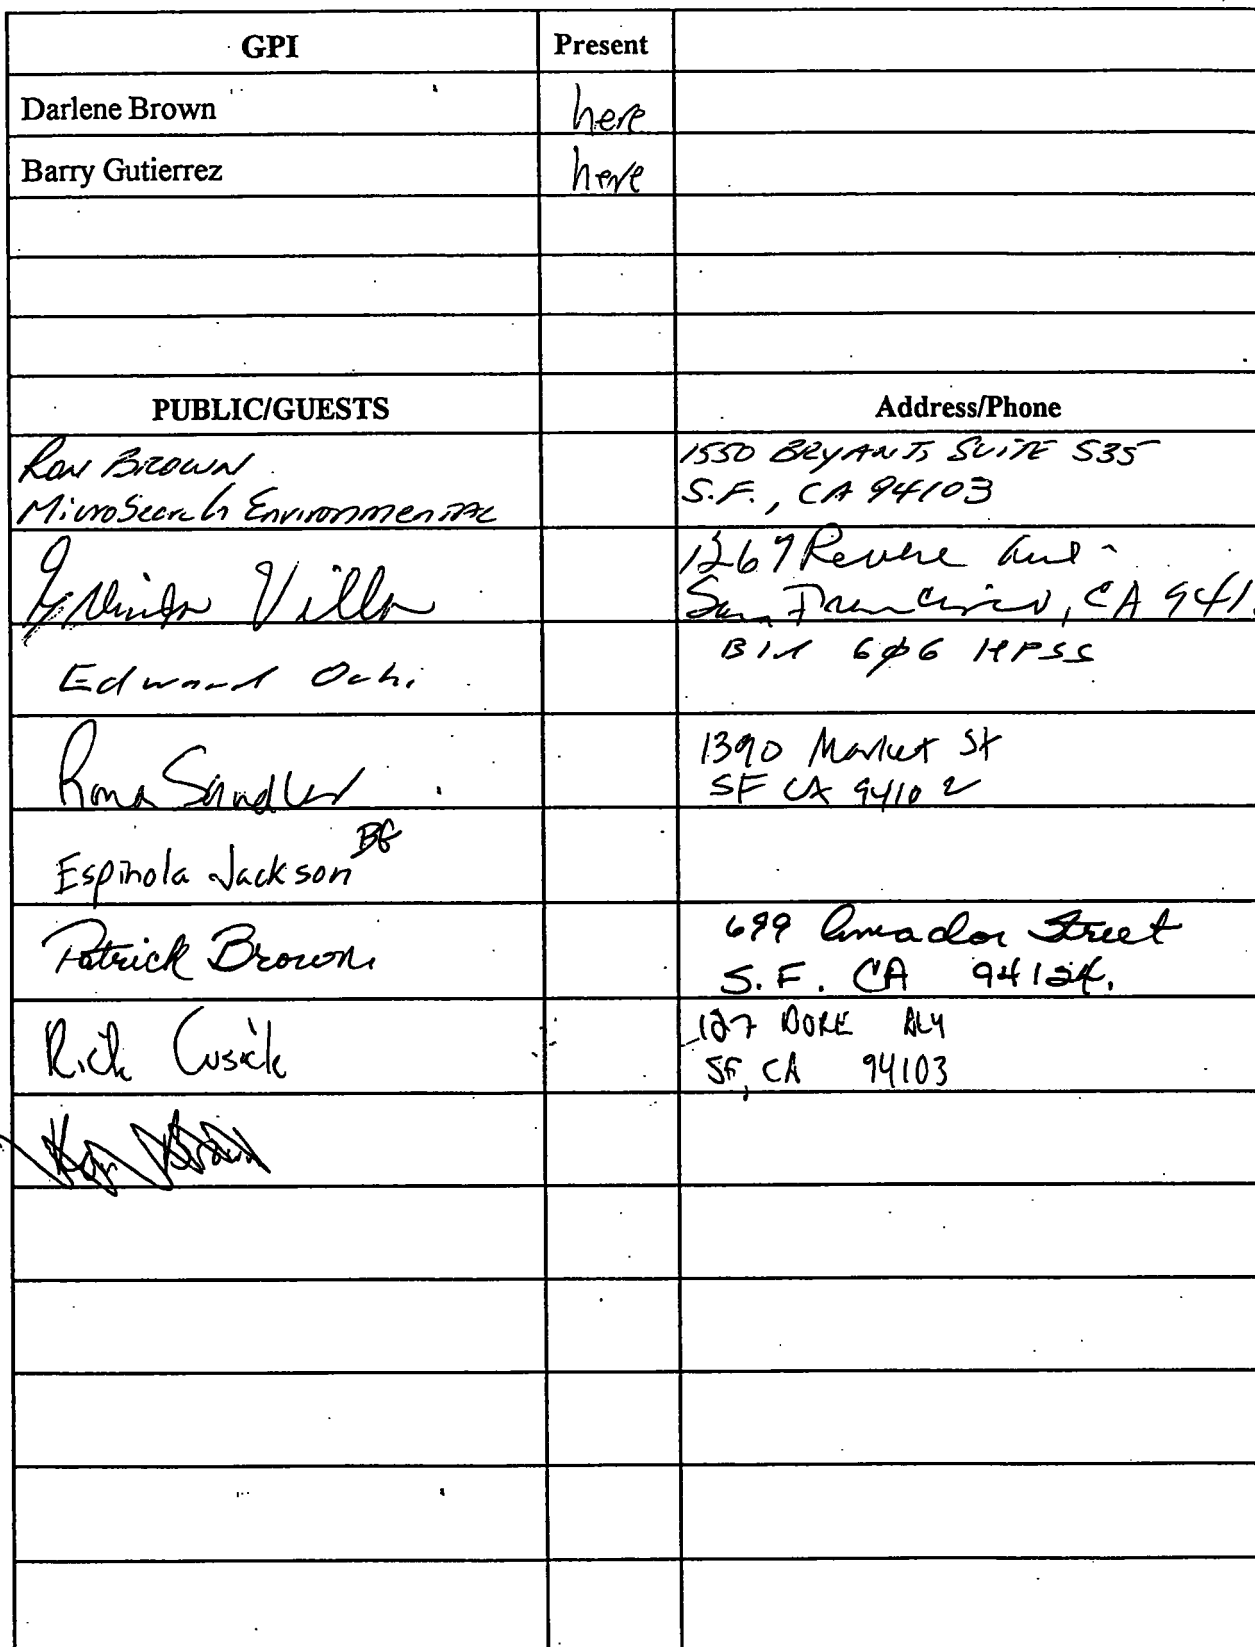 GPI Present
Darlene Brown here
Barry Gutierrez here
PUBLIC/GUESTS Address/Phone
Ron BROWN 1550 BRYANT, SUITE 535
MicroSearch Environmental S.F., CA 94103
Villa 1267 Revere Ave
San Francisco, CA 941
Edward Ochi 606 HPSS
Rona Sandler 1390 Market St
SF CA 94102
Espinola Jackson BG
Patrick Brown 699 Amador Street
S.F. CA 94124.
Rick Cusick 127 DORE ALY
SF, CA 94103